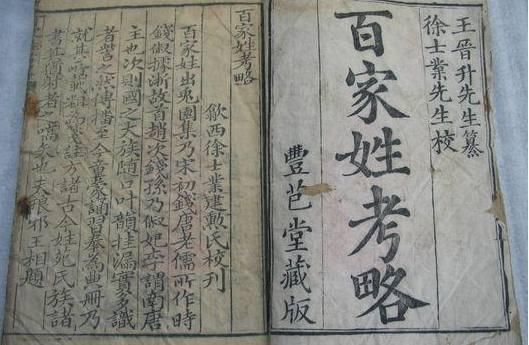 王晉升先生纂
徐士業先生校
百家姓考略
豐芑堂藏版
百家姓考略
歙西徐士業建勳氏校刊
百家姓出兎園集乃宋初錢唐老儒所作時
錢俶據浙故首趙次錢孫乃俶妃李謂南唐
主也次則國之大族隨口叶韻挂漏實多識
者訾之然傳播至今童蒙誦習奉為典冊乃
就其
為
註
古今姓
氏族諸
書
者之
也夫琅邪王相題